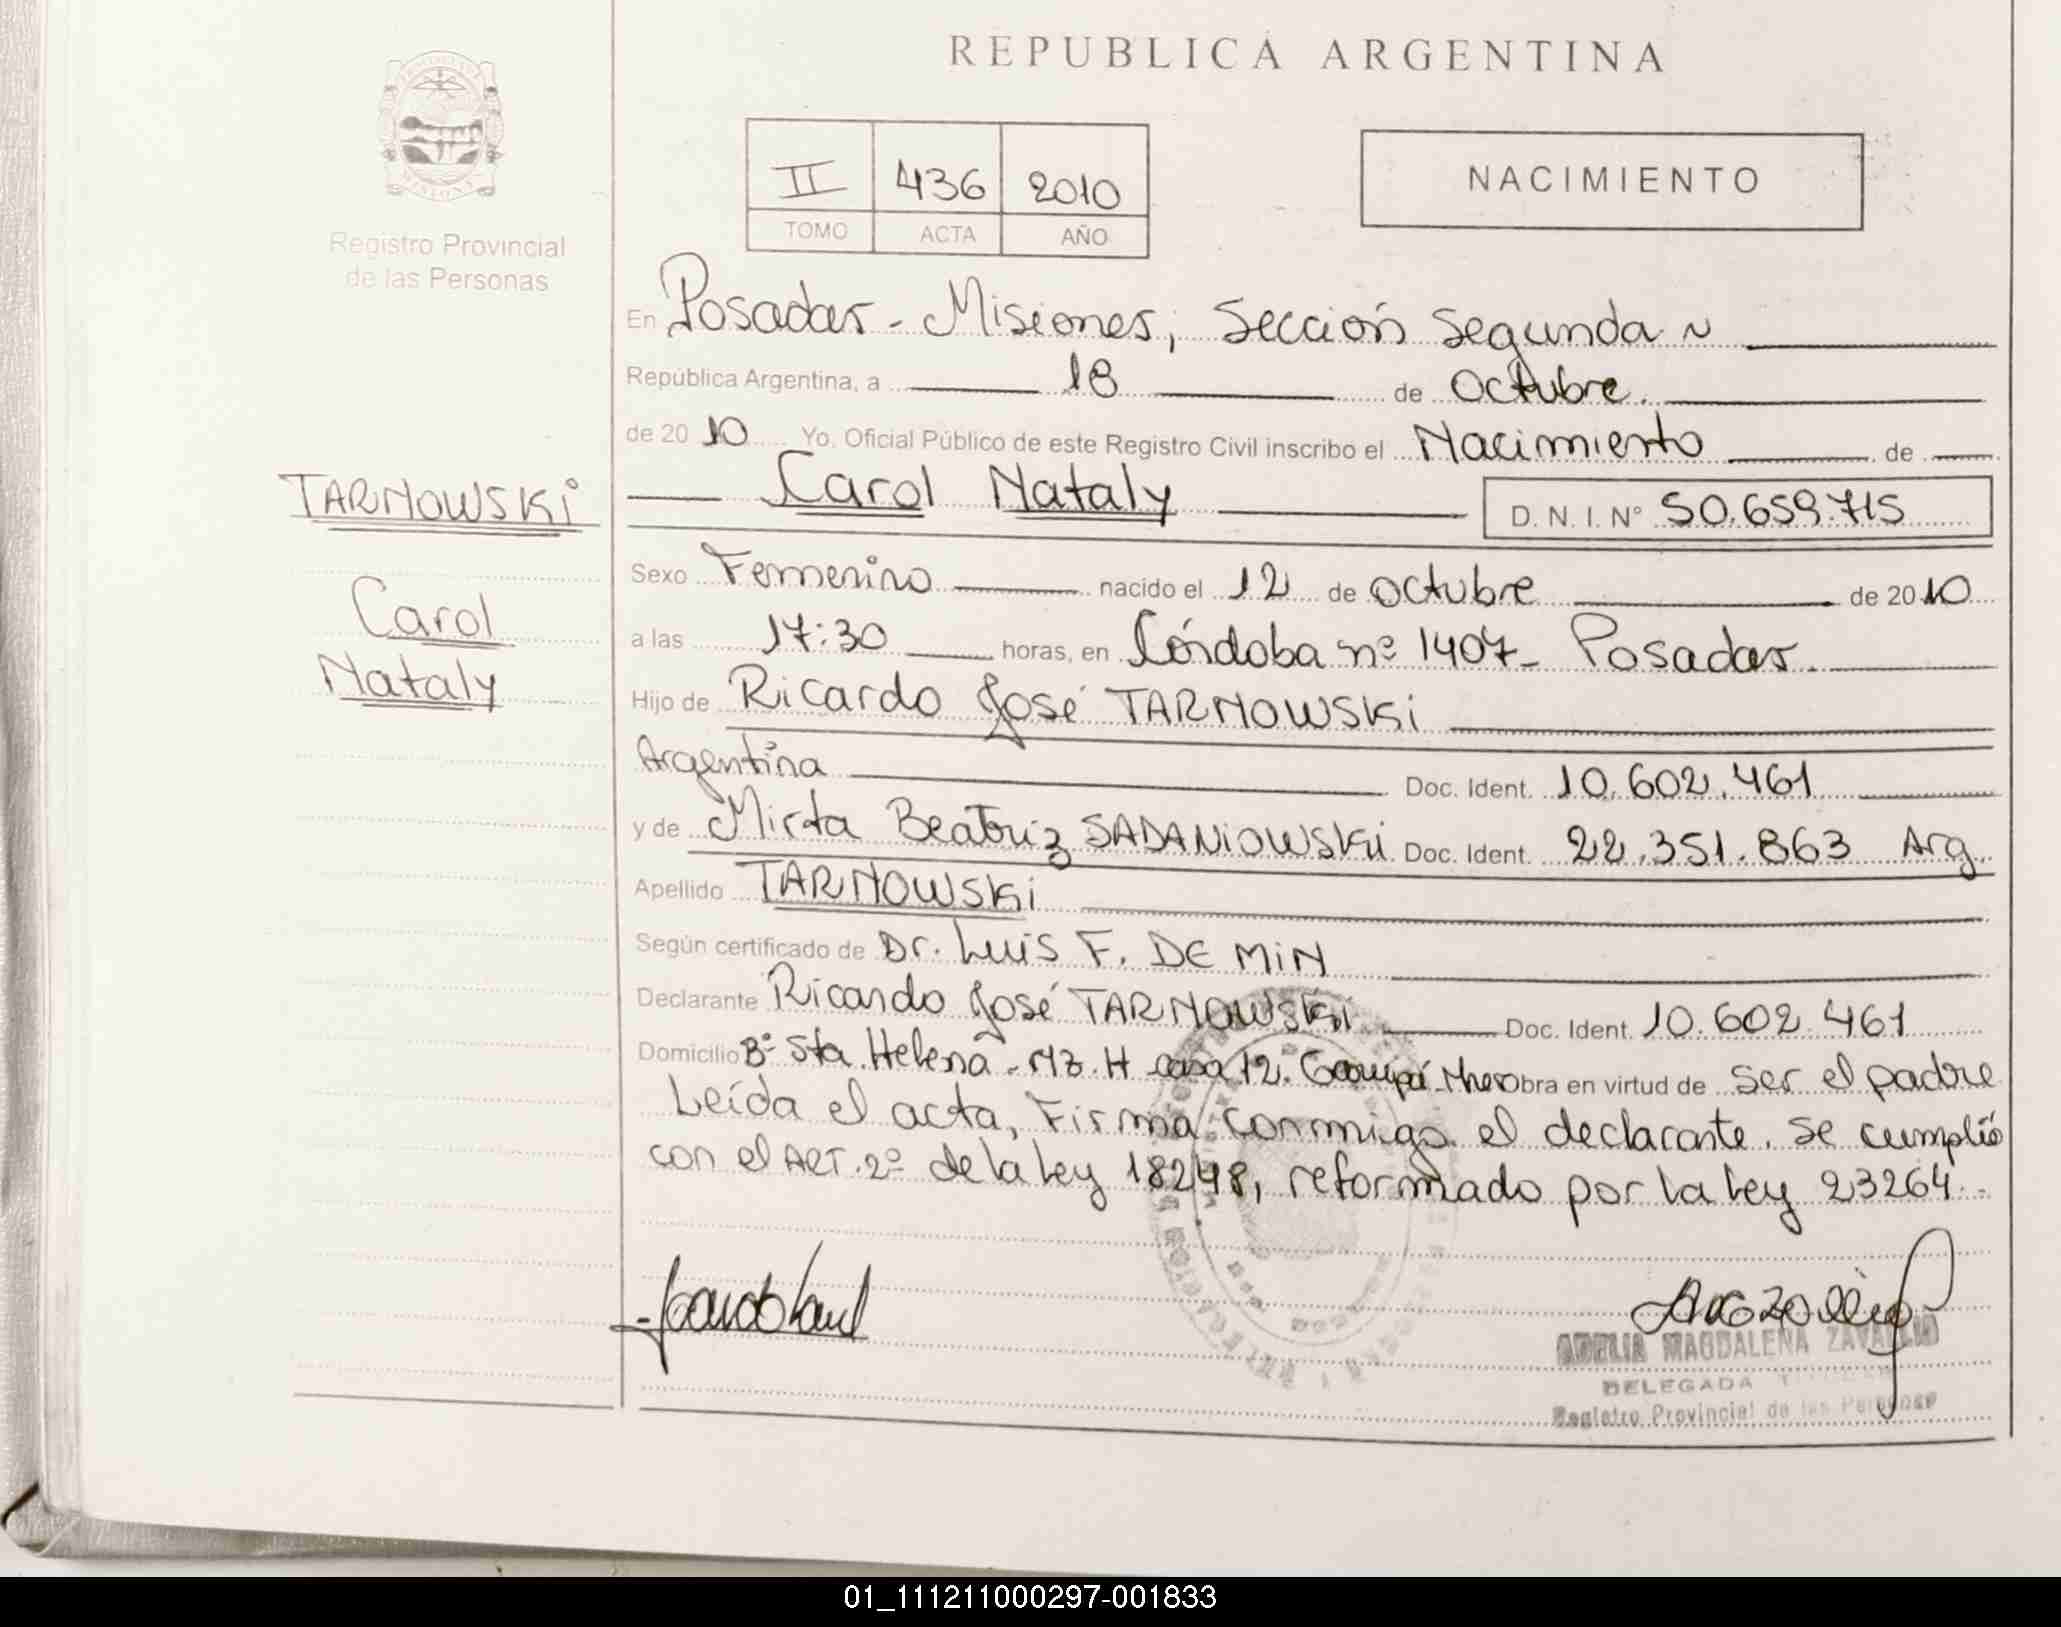 REPUBLICA ARGENTINA
PROVINCIA DE MISIONES
Registro Provincial
de las Personas
II 436 2010
TOMO ACTA AÑO
NACIMIENTO
En Posadas - Misiones, Sección Segunda
República Argentina, a 18 de Octubre.
de 2010 Yo, Oficial Público de este Registro Civil inscribo el Nacimiento de
Carol Nataly D. N. I. N° 50.659.715
TARNOWSKi
Carol
Nataly
Sexo Femenino nacido el 12 de Octubre de 2010
a las 17:30 horas, en Córdoba nº 1407- Posadas.
Hijo de Ricardo José TARNOWSKi
Argentina Doc. Ident. 10.602.461
y de Mirta Beatriz SADANiOWSKi Doc. Ident. 22.351.863 Arg.
Apellido TARNOWSKi
Según certificado de Dr. Luis F. DE MiN
Declarante Ricardo José TARNOWSKi Doc. Ident. 10.602.461
Domicilio Bº Sta. Helena - Mz. H casa 12. obra en virtud de ser el padre
Leída el acta, Firma conmigo el declarante. Se cumplió
con el ART. 2º de la Ley 18248, reformado por la Ley 23264.-
ADELIA MAGDALENA ZAVALLIO
DELEGADA
Registro Provincial de las Personas
01_111211000297-001833